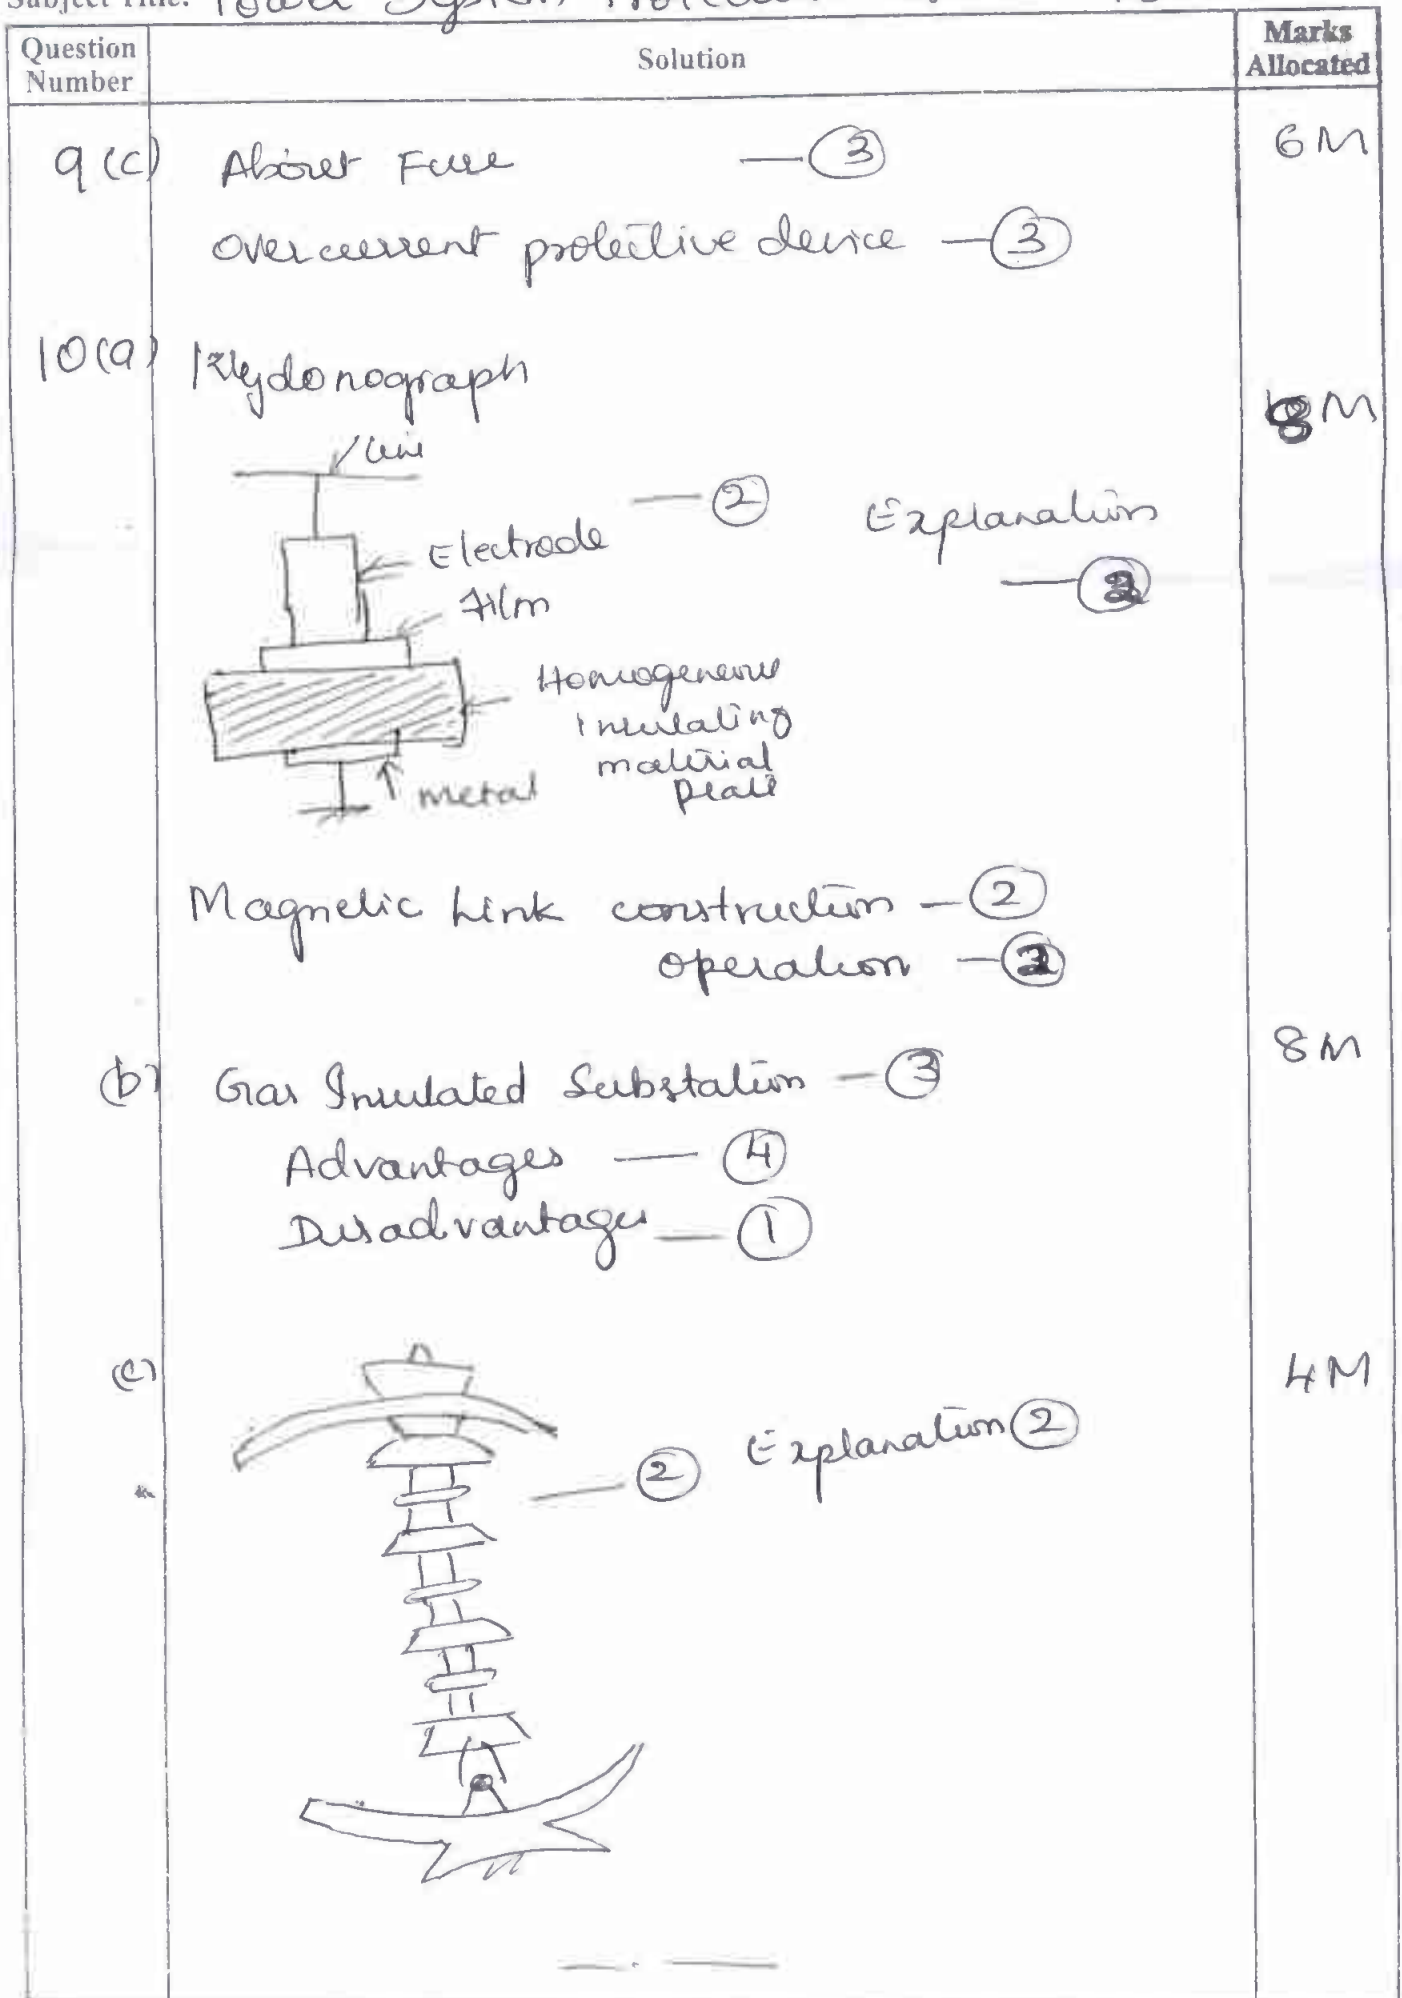 Subject Title: Power System Protection
Question Number
Solution
Marks Allocated
9(c) About Fuse — 3 6M
Overcurrent protective device — 3
10(a) Klydonograph
8M
Line
— 2
Explanation
Electrode
— 2
Film
Homogeneous
insulating
material
plate
metal
Magnetic Link construction — 2
operation — 2
(b) Gas Insulated Substation — 3 8M
Advantages — 4
Disadvantages — 1
(c) 4M
— 2 Explanation 2